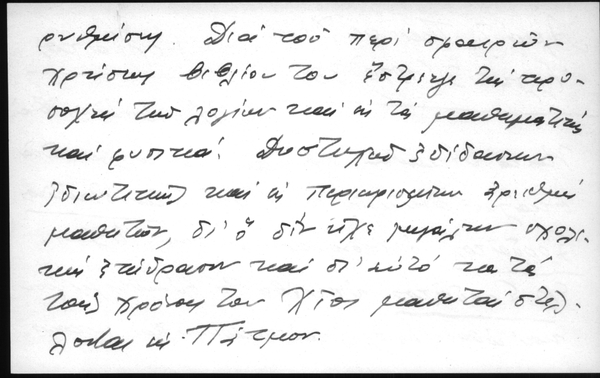 ρυθμίσεις. Διά τοῦ περί σφαιρῶν
χρήσεως βιβλίου του ἔστρεψε τήν προ-
σοχήν τῶν λογίων καί εἰς τά μαθηματικά
καί φυσικά. Δυστυχῶς ἐδίδασκεν
ἰδιωτικῶς καί εἰς περιωρισμένον ἀριθμόν
μαθητῶν, δι' ὅ δέν εἶχε μεγάλην σχολι-
κήν ἐπίδρασιν καί δι' αὐτό κατά
τούς χρόνους του Χῖοι μαθηταί στέλ-
λονται εἰς Πάτμον.